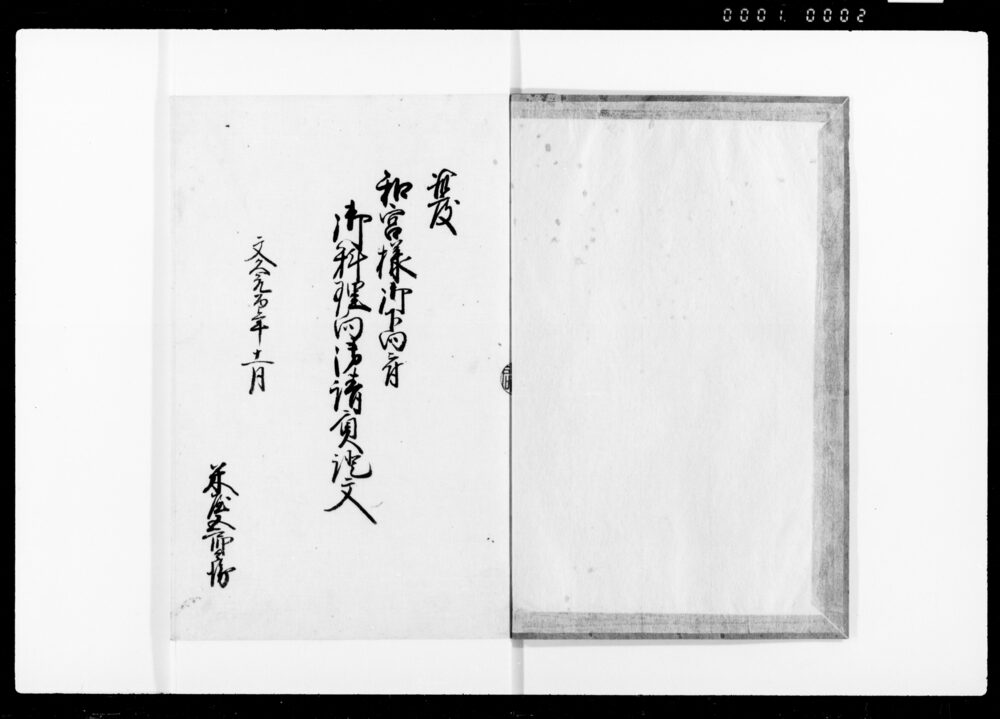 0001. 0002
此度
和宮様御下向ニ付
御料理向御請負証文
文久元酉年十一月